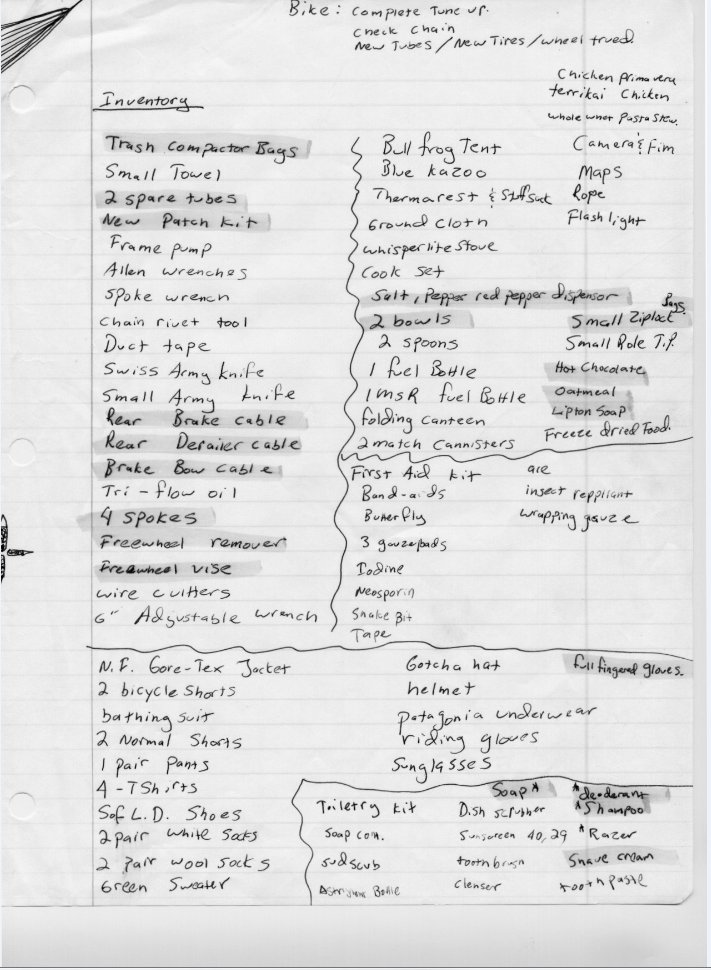 Bike: Complete Tune up.
Check Chain
New Tubes / New Tires / wheel trued.
Chicken Primavera
terrikai Chicken
Pasta Stew.
Inventory
Trash compactor Bags
Small Towel
2 spare tubes
New Patch kit
Frame pump
Allen wrenches
Spoke wrench
Chain rivet tool
Duct tape
Swiss Army knife
Small Army knife
Rear Brake cable
Rear Derailer cable
Brake Bow cable
Tri-flow oil
4 spokes
Freewheel remover
Freewheel vise
wire cutters
6" Adjustable wrench
Bull frog Tent
Blue kazoo
Thermarest & Stuff Suck
Ground Cloth
whisperlite Stove
Cook Set
Salt, Pepper red pepper dispensor
2 bowls
2 spoons
1 fuel Bottle
1 MSR fuel Bottle
folding canteen
2 match cannisters
Camera & Fim
Maps
Rope
Flash light
Bags
Small Ziplock
Small Role T.P.
Hot Chocolate
Oatmeal
Lipton Soap
Freeze dried Food
First Aid kit
Band-aids
Butterfly
3 gauzepads
Iodine
Neosporin
Snake Bit
Tape
insect reppliant
wrapping gauze
N.F. Gore-Tex Jacket
2 bicycle Shorts
bathing suit
2 Normal Shorts
1 pair Pants
4 -TShirts
L.D. Shoes
2 pair white Socks
2 Pair wool socks
Green Sweater
Gotcha hat
helmet
patagonia underwear
riding gloves
Sunglasses
full fingered gloves.
Toiletry kit
Soap con.
sudscub
Bottle
Soap *
Dish scrubber
Sunscreen 40, 29
toothbrush
Clenser
*deoderant
*Shampoo
*Razer
Shave cream
toothpaste